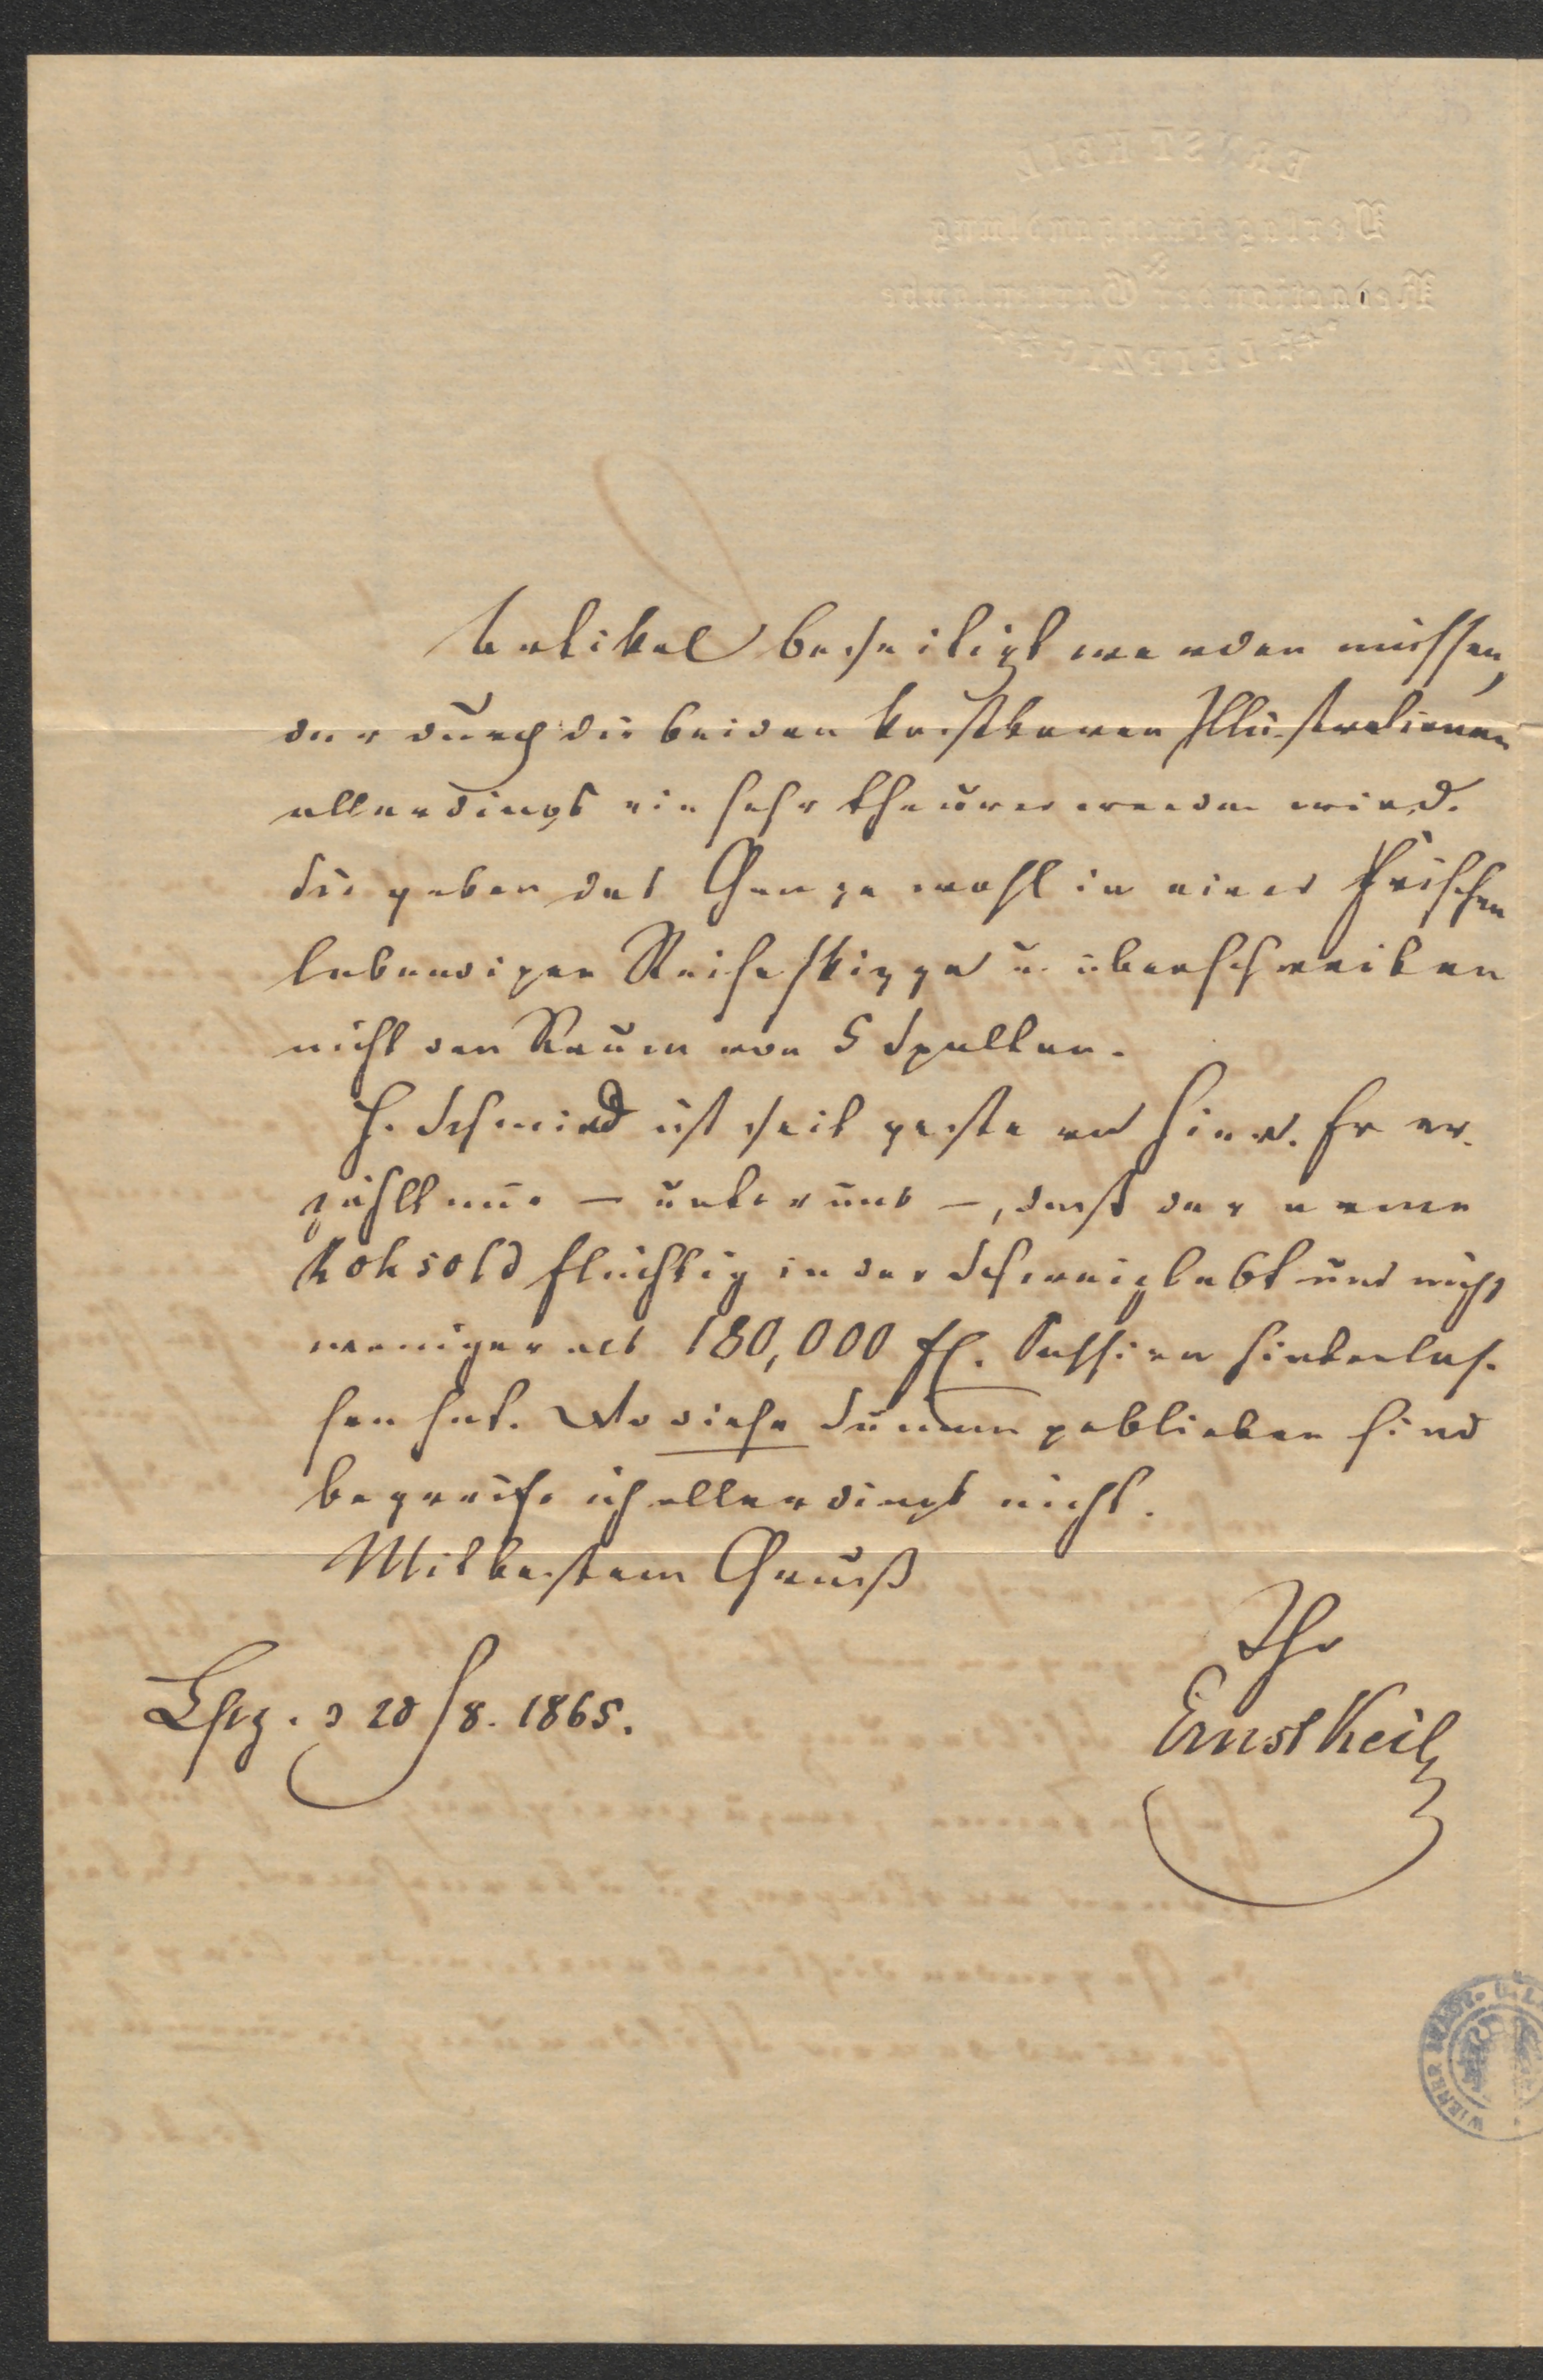 ERNST KEIL
Verlagsbuchhandlung
&
Redaction der Gartenlaube
LEIPZIG
Artikel beseitigt werden müssen,
der durch die beiden kostbaren Illustrationen
allerdings ein sehr theurer werden wird.
Sie geben das Ganze wohl in einer frischen
lebendigen Reiseskizze u. überschreiten
nicht den Raum von 5 Spalten.
H. Schmid ist seit gestern hier. Er er-
zählt mir – unter uns –, daß der arme
flüchtig in der Schweiz lebt und nicht
weniger als 180,000 fl. Passiva hinterlas-
sen hat. Wo diese Summen geblieben sind
begreife ich allerdings nicht.
Mit bestem Gruß
Ihr
Lpzg. d 28/8. 1865.
Ernst Keil
WIENER